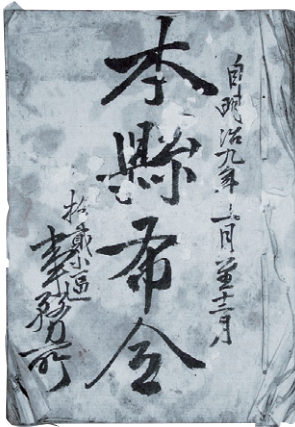 自明治九年七月至十二月
本縣布令
拾貳小區
事務所